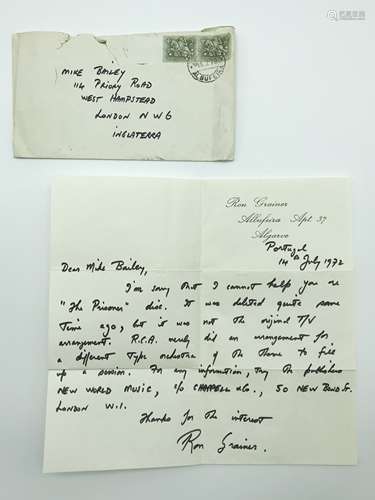 MIKE BAILEY
114 PRIORY ROAD
WEST HAMPSTEAD
LONDON NW6
INGLATERRA
ALBUFEIRA
Ron Grainer
Albufeira Apt. 37
Algarve
Portugal
14th July 1972
Dear Mike Bailey,
I'm sorry that I cannot help you re
"The Prisoner" disc. It was deleted quite some
time ago, but it was not the original T/V
arrangement. R.C.A. merely did an arrangement for
a different type orchestra of the theme to fill
up a session. For any information, try the publishers
NEW WORLD MUSIC, c/o CHAPPELL &Co., 50 NEW BOND St.
LONDON W.1.
Thanks for the interest
Ron Grainer.